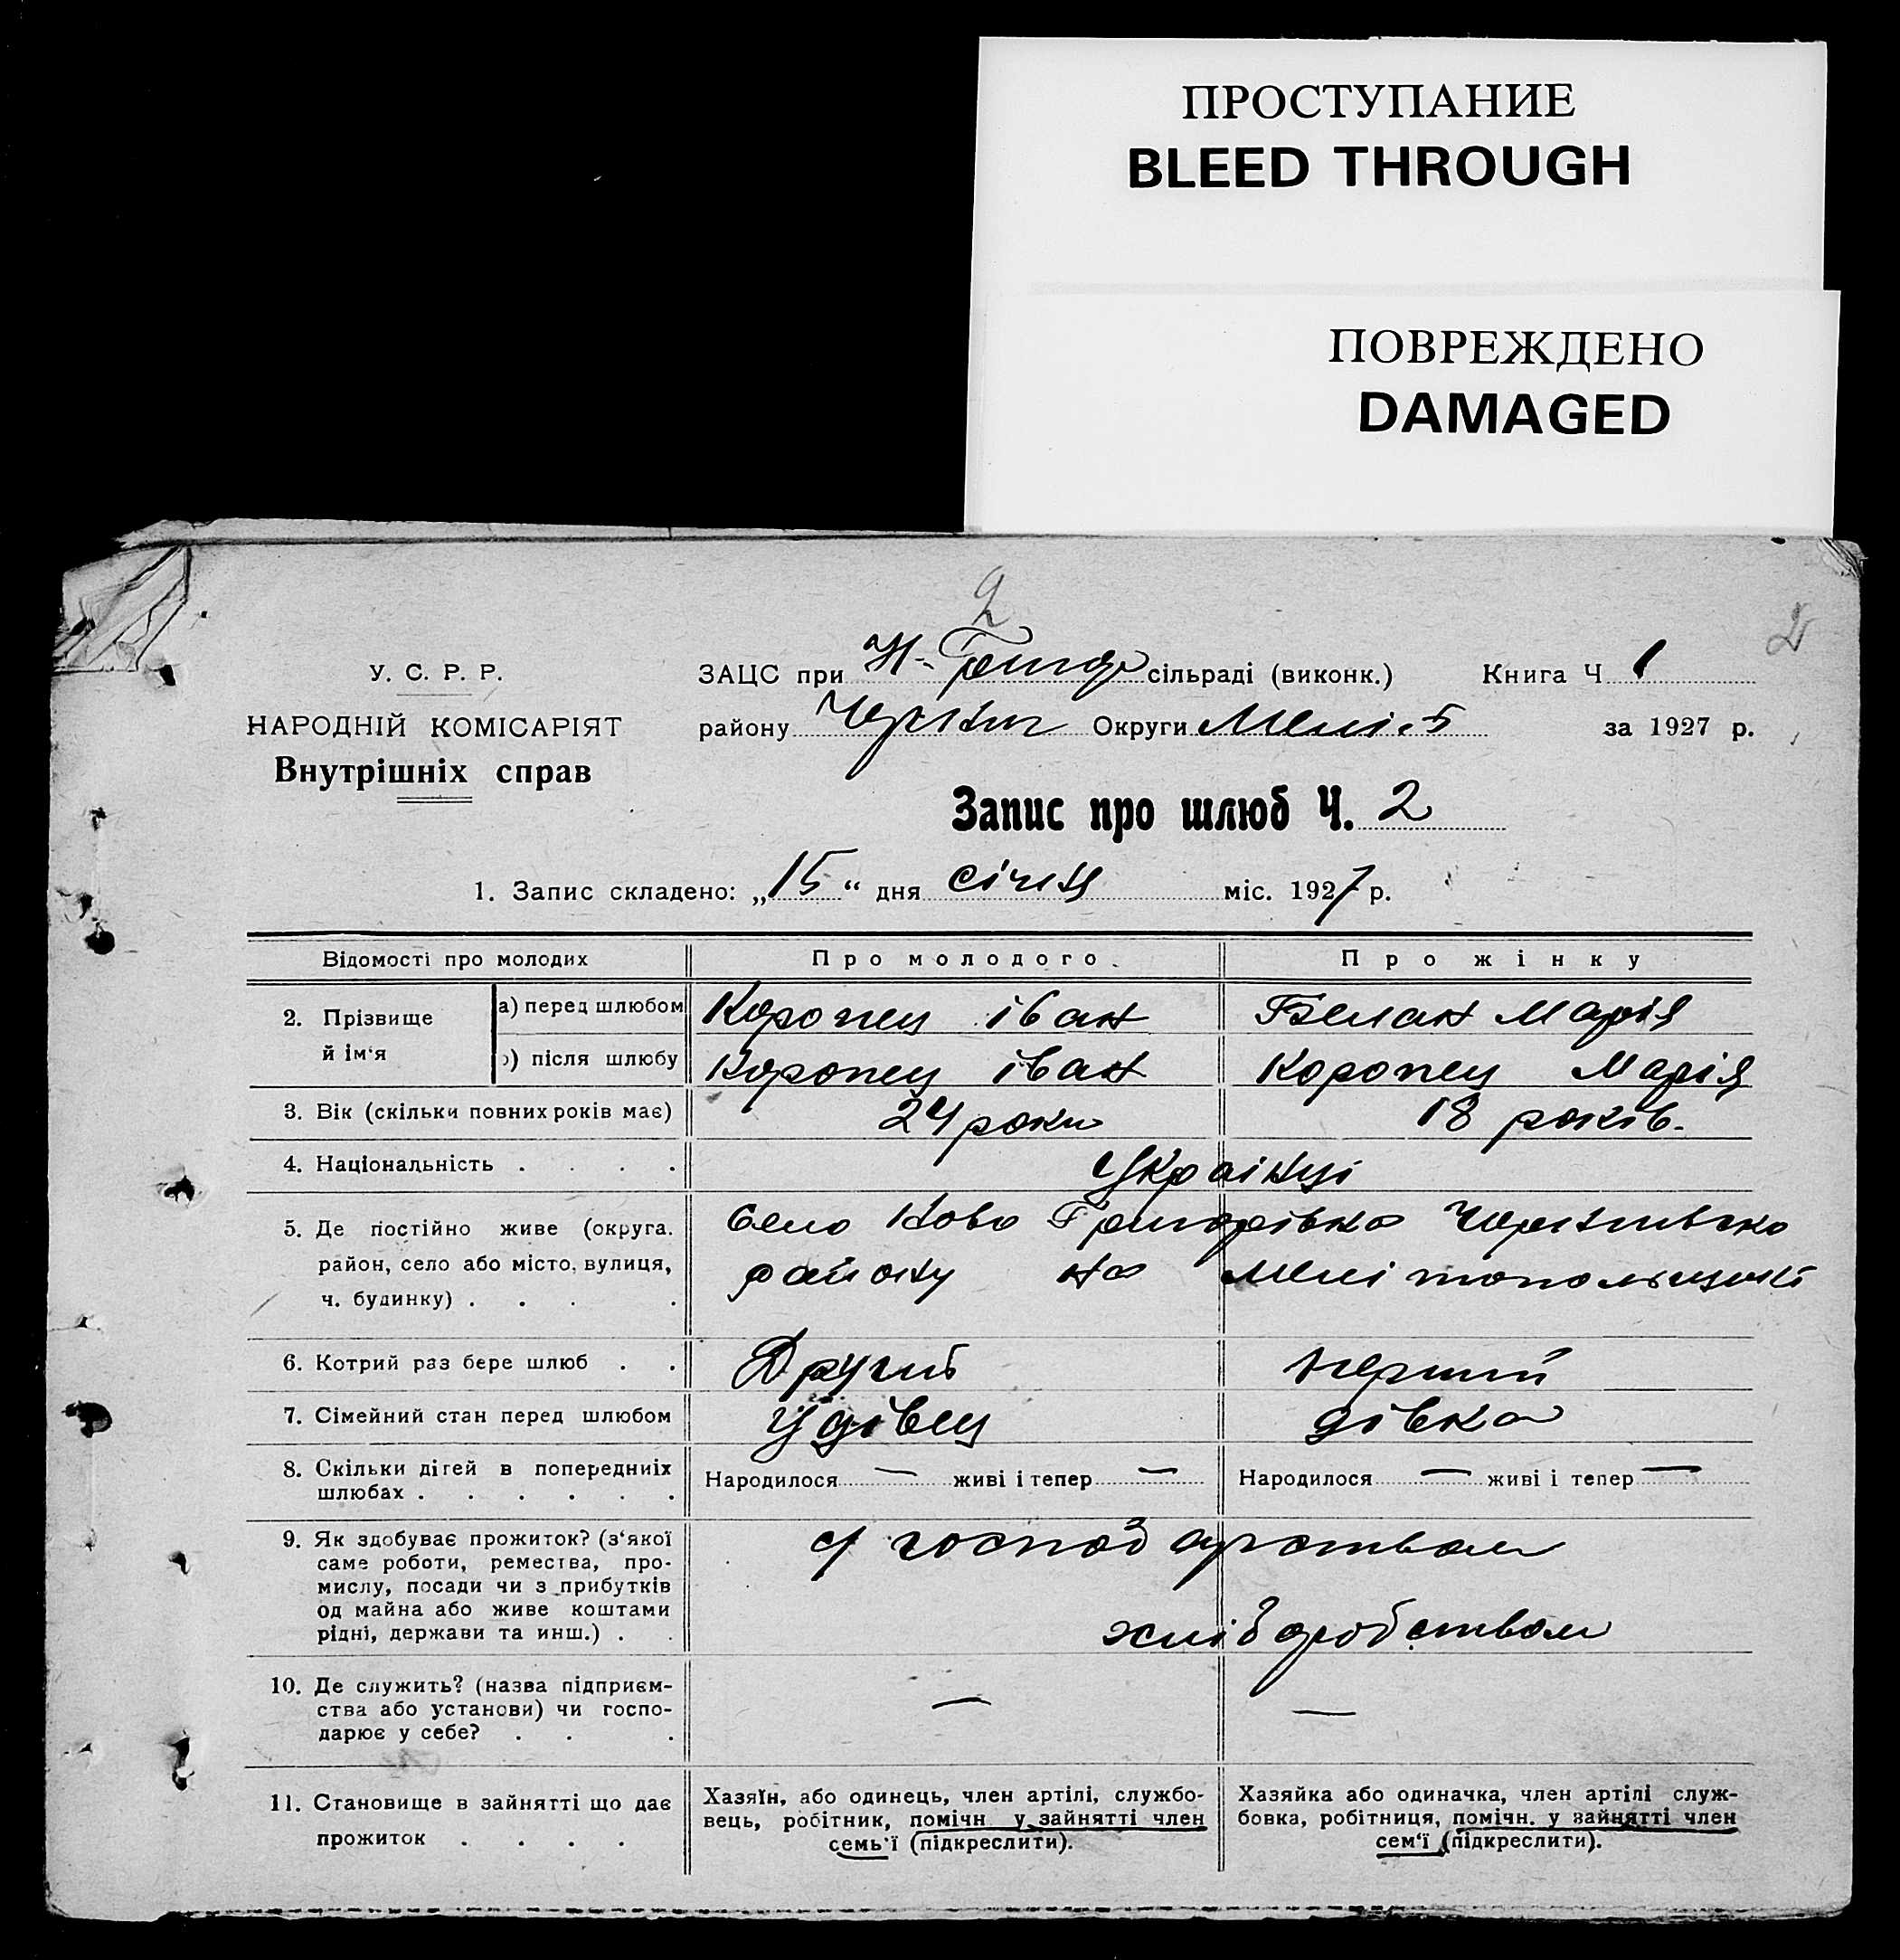 ПРОСТУПАНИЕ
BLEED THROUGH
ПОВРЕЖДЕНО
DAMAGED
2
2
У. С. Р. Р.
НАРОДНІЙ КОМІСАРІЯТ
Внутрішніх справ
ЗАЦС при Н-Григор сільраді (виконк.) Книга Ч 1
району Черніг Округи Меліт за 1927 р.
Запис про шлюб Ч. 2
1. Запис складено: „15“ дня січня міс. 1927 р.
Відомості про молодих Про молодого. Про жінку
2. Прізвище й ім‘я а) перед шлюбом Коропец іван Белан Марія
б) після шлюбу Коропец іван Коропец Марія
3. Вік (скільки повних років має) 24 роки 18 років.
4. Національність . . . . Українці
5. Де постійно живе (округа. Село Ново Григорівка Чернигівсько
район, село або місто, вулиця, району на Мелітопольщині
ч. будинку) . . . .
6. Котрий раз бере шлюб . . Другий перший
7. Сімейний стан перед шлюбом Удівец дівка
8. Скільки дітей в попередніх Народилося — живі і тепер — Народилося — живі і тепер —
шлюбах . . . . . .
9. Як здобуває прожиток? (з‘якої с/господарством
саме роботи, ремества, про-
мислу, посади чи з прибутків
од майна або живе коштами
рідні, держави та инш.) . . хліборобством
10. Де служить? (назва підприєм-
ства або установи) чи госпо- — —
дарює у себе? . . .
11. Становище в зайнятті що дає Хазяїн, або одинець, член артілі, службо- Хазяйка або одиначка, член артілі служ-
прожиток . . . . вець, робітник, помічн у зайнятті член бовка, робітниця, помічн. у зайнятті член
семь‘ї (підкреслити). сем‘ї (підкреслити).